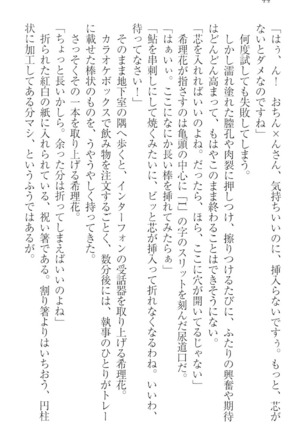 「はぅ、ん！　おちん×んさん、気持ちいいのに、挿入らないですぅ。もっと、芯が
ないとダメなのですね」
　何度試しても失敗する。
　しかし濡れ塗れた膣孔や肉裂に押しつけ、擦りつけるたびに、ふたりの興奮や期待
はどんどん高まって、もはやこのまま終わることはできそうにない。
「芯を入れればいいのよね。だったら、ほら、ここに穴が開いてるじゃない」
　希理花が指さすのは亀頭の中心に「｜」の字のスリットを刻んだ尿道口だ。
「はぁぃい。ここになにか長い棒を挿れてみたらぁ」
「鮎を串刺しにして焼くみたいに、ピッと芯が挿入って折れなくなるわね。いいわ、
持ってなさい！」
　そのまま地下室の隅へ歩くと、インターフォンの受話器を取り上げる希理花。
　カラオケボックスで飲み物を注文するごとく、数分後には、執事のひとりがトレー
に載せた棒状のものを、うやうやしく持ってきた。
　さっそくその一本を取り上げる希理花。
「ちょっと長いかしら。余った分は折ってしまえばいいのよね」
　折られた紅白の紙に入れられている、祝い箸である。割り箸よりはいちおう、円柱
状に加工してある分マシ、というふうではあるが。